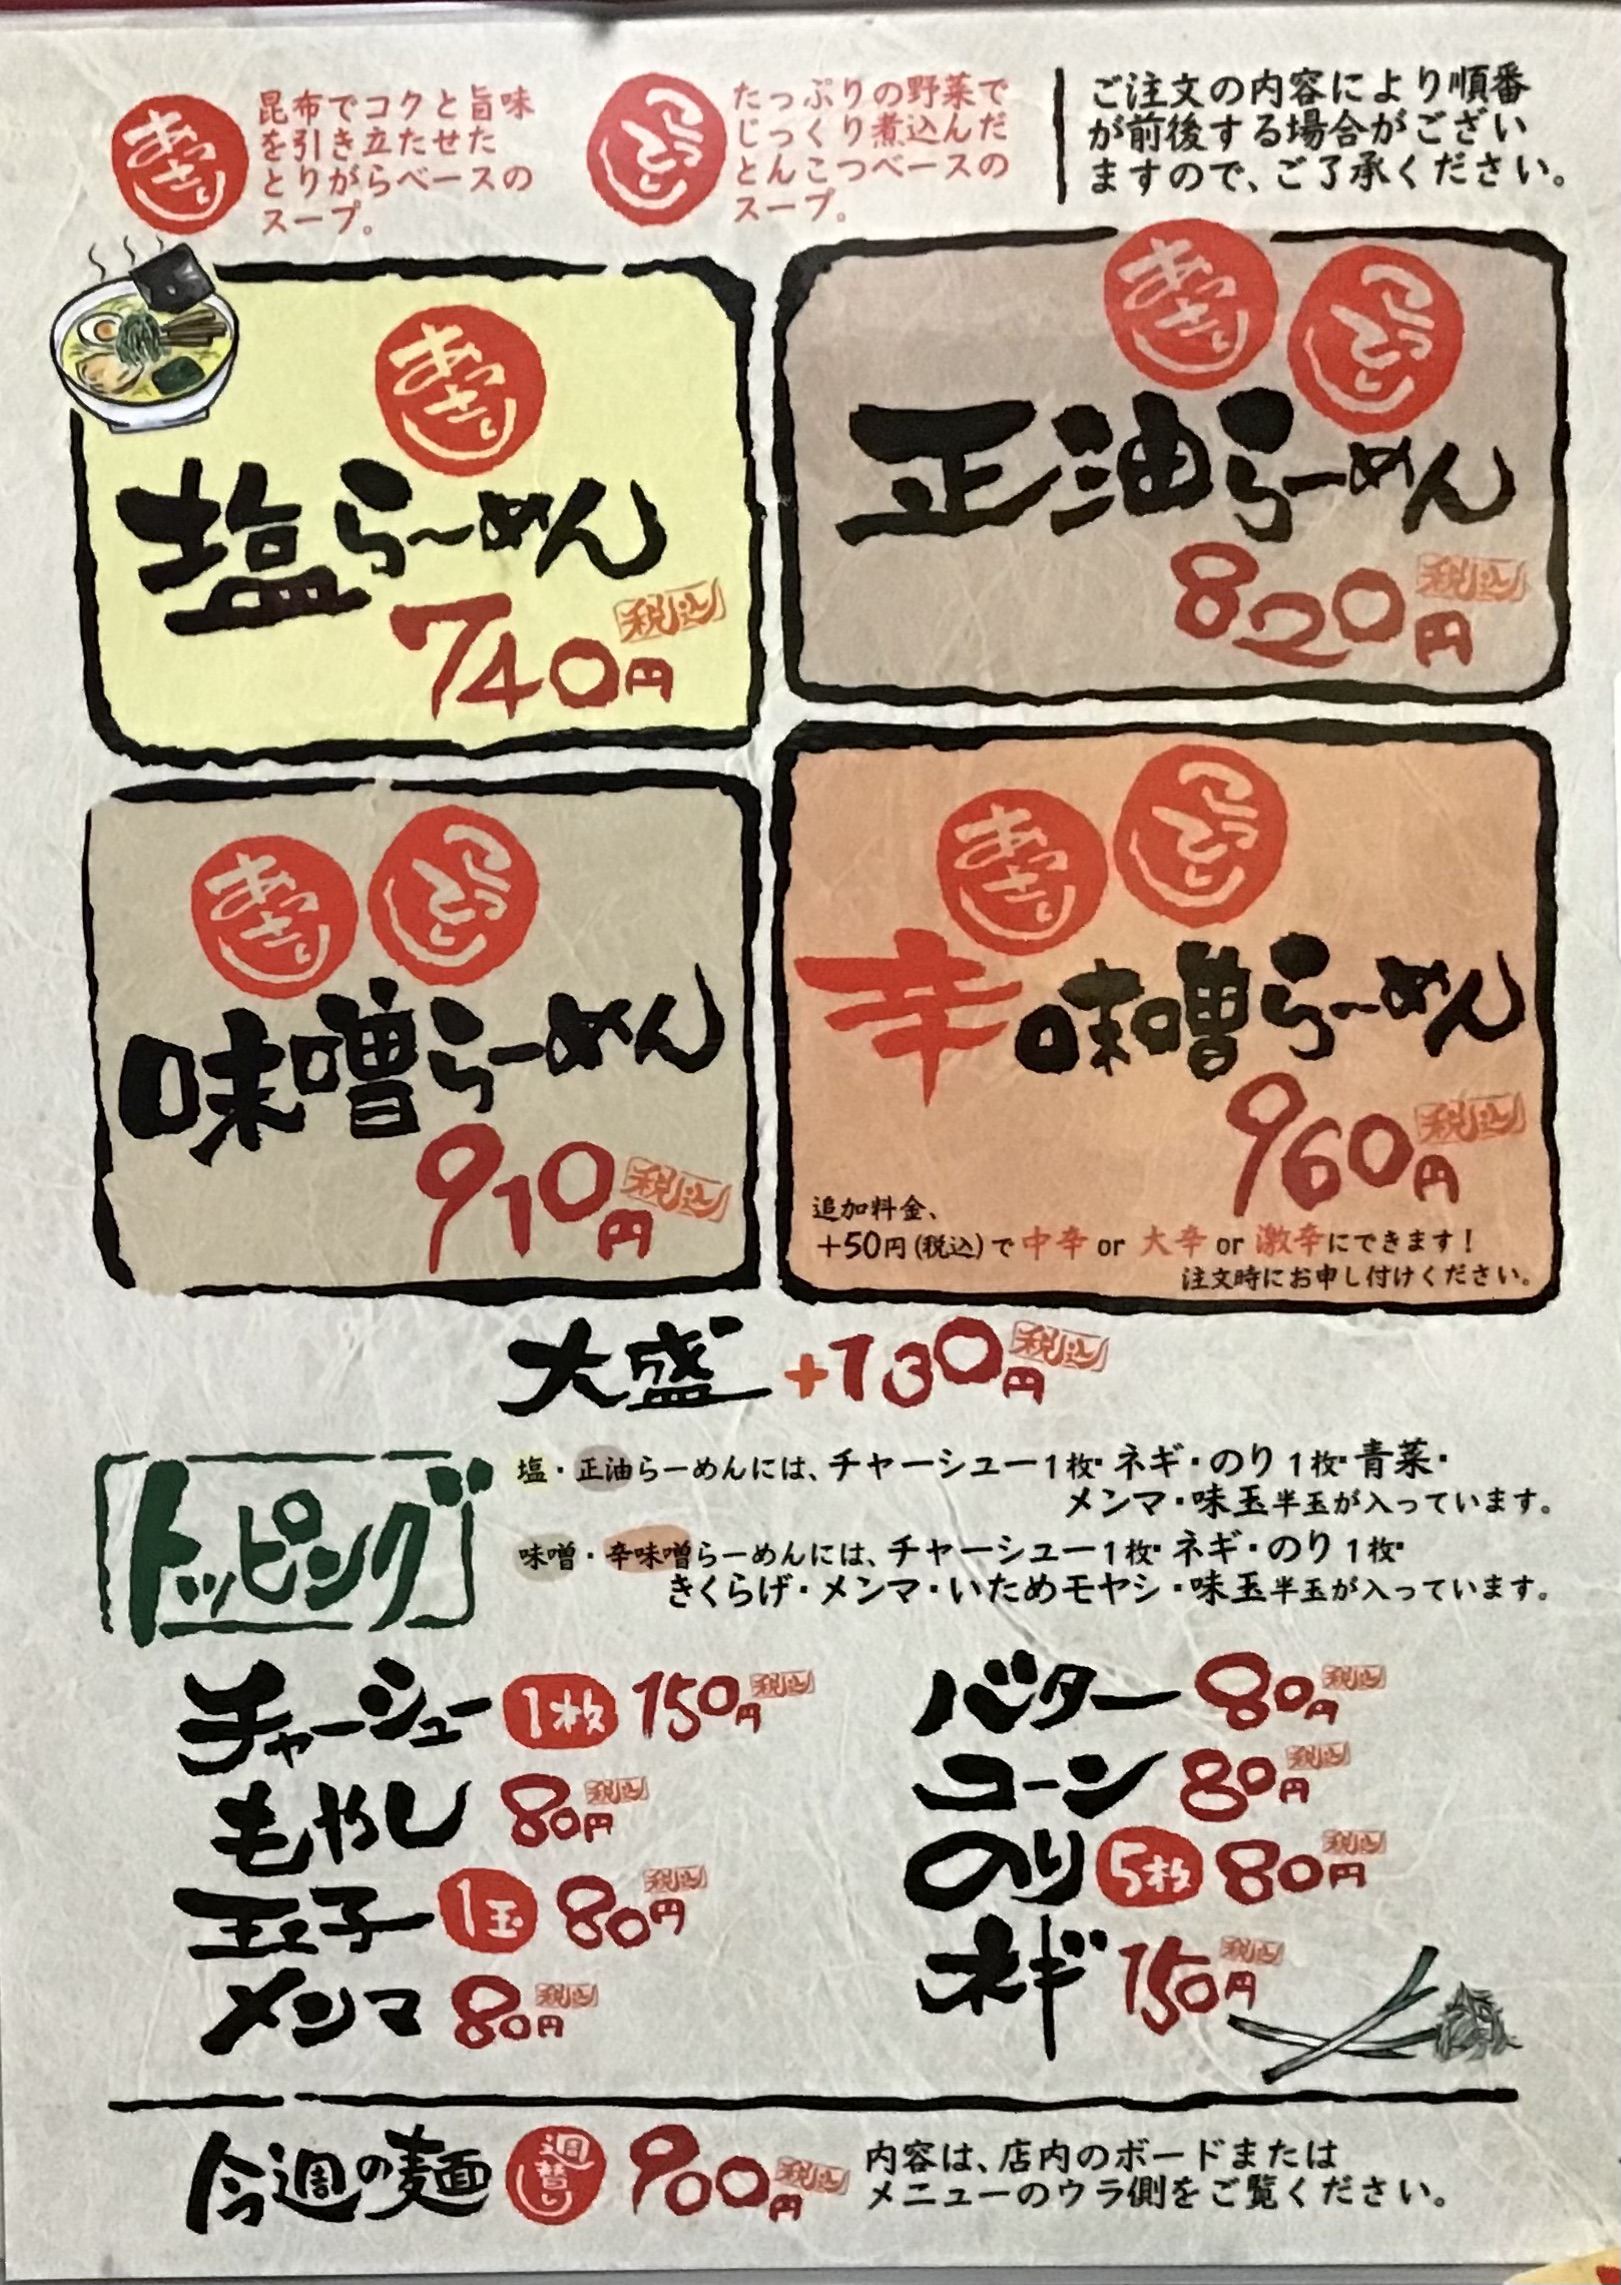 あっさり
昆布でコクと旨味
を引き立たせた
とりがらベースの
スープ。
こってり
たっぷりの野菜で
じっくり煮込んだ
とんこつベースの
スープ。
ご注文の内容により順番
が前後する場合がござい
ますので、ご了承ください。
あっさり
塩らーめん
740円 税込
あっさり こってり
正油らーめん
820円 税込
あっさり こってり
味噌らーめん
910円 税込
あっさり こってり
辛味噌らーめん
960円 税込
追加料金、
+50円(税込)で 中辛 or 大辛 or 激辛にできます!
注文時にお申し付けください。
大盛 +130円 税込
トッピング
塩・正油らーめんには、チャーシュー1枚・ネギ・のり1枚・青菜・
メンマ・味玉半玉が入っています。
味噌・辛味噌らーめんには、チャーシュー1枚・ネギ・のり1枚・
きくらげ・メンマ・いためモヤシ・味玉半玉が入っています。
チャーシュー 1枚 150円 税込
もやし 80円 税込
玉子 1玉 80円 税込
メンマ 80円 税込
バター 80円 税込
コーン 80円 税込
のり 5枚 80円 税込
ネギ 150円 税込
今週の麺 週替り 900円 税込
内容は、店内のボードまたは
メニューのウラ側をご覧ください。